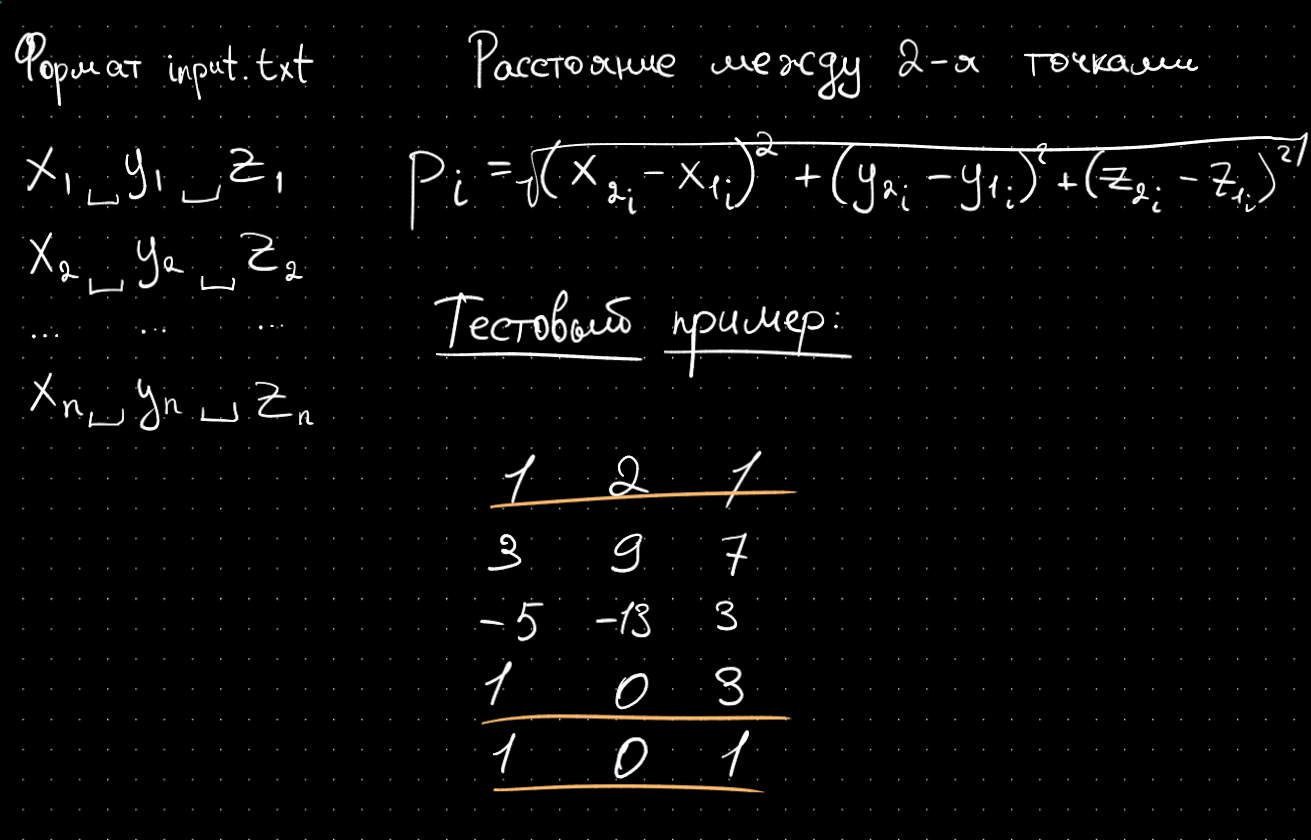 Формат input.txt
x₁␣y₁␣z₁
x₂␣y₂␣z₂
... ... ...
xₙ␣yₙ␣zₙ
Расстояние между 2-я точками
pᵢ = √((x₂ᵢ - x₁ᵢ)² + (y₂ᵢ - y₁ᵢ)² + (z₂ᵢ - z₁ᵢ)²)
Тестовый пример:
1 2 1
3 9 7
-5 -13 3
1 0 3
1 0 1